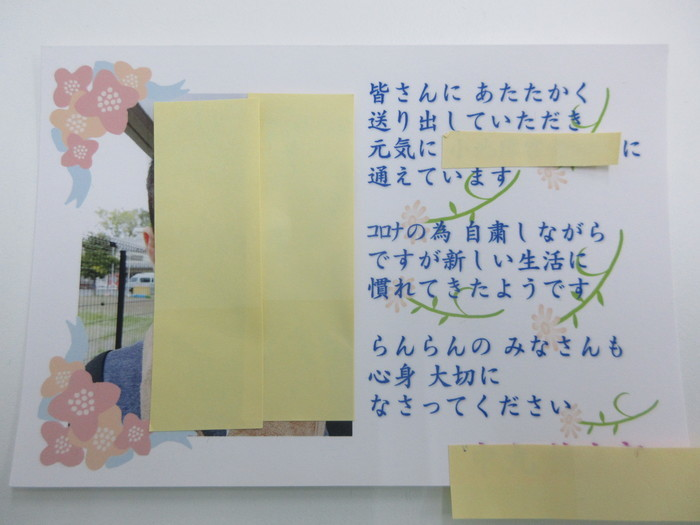 皆さんに あたたかく
送り出していただき
元気に に
通えています
コロナの為 自粛しながら
ですが新しい生活に
慣れてきたようです
らんらんの みなさんも
心身 大切に
なさってください